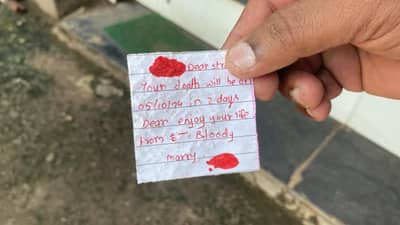 Dear str
Your death will be on
05/10/24 in 2 days
Dear enjoy your life
from
Bloody
marry